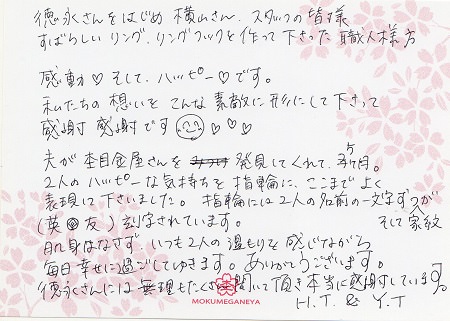 徳永さんをはじめ 横山さん、スタッフの皆様
すばらしい リング、リングフックを作って下さった 職人様方
感動♡ そして、ハッピー♡です。
私たちの 想いを こんな 素敵に 形にして 下さって
感謝 感謝です ♡♡♡
夫が 杢目金屋さんを 発見してくれて、3ヶ月。
2人の ハッピーな気持ちを 指輪に、ここまで よく
表現して 下さいました。 指輪には 2人の名前の一文字ずつが
(英 友) 刻字されています。 そして 家紋
肌身はなさず、いつも 2人の 温もりを 感じながら
毎日 幸せに過ごしてゆきます。ありがとうございます。
徳永さんには 無理もたくさん聞いて 頂き 本当に感謝しています。
MOKUMEGANEYA
H.T. & Y.T